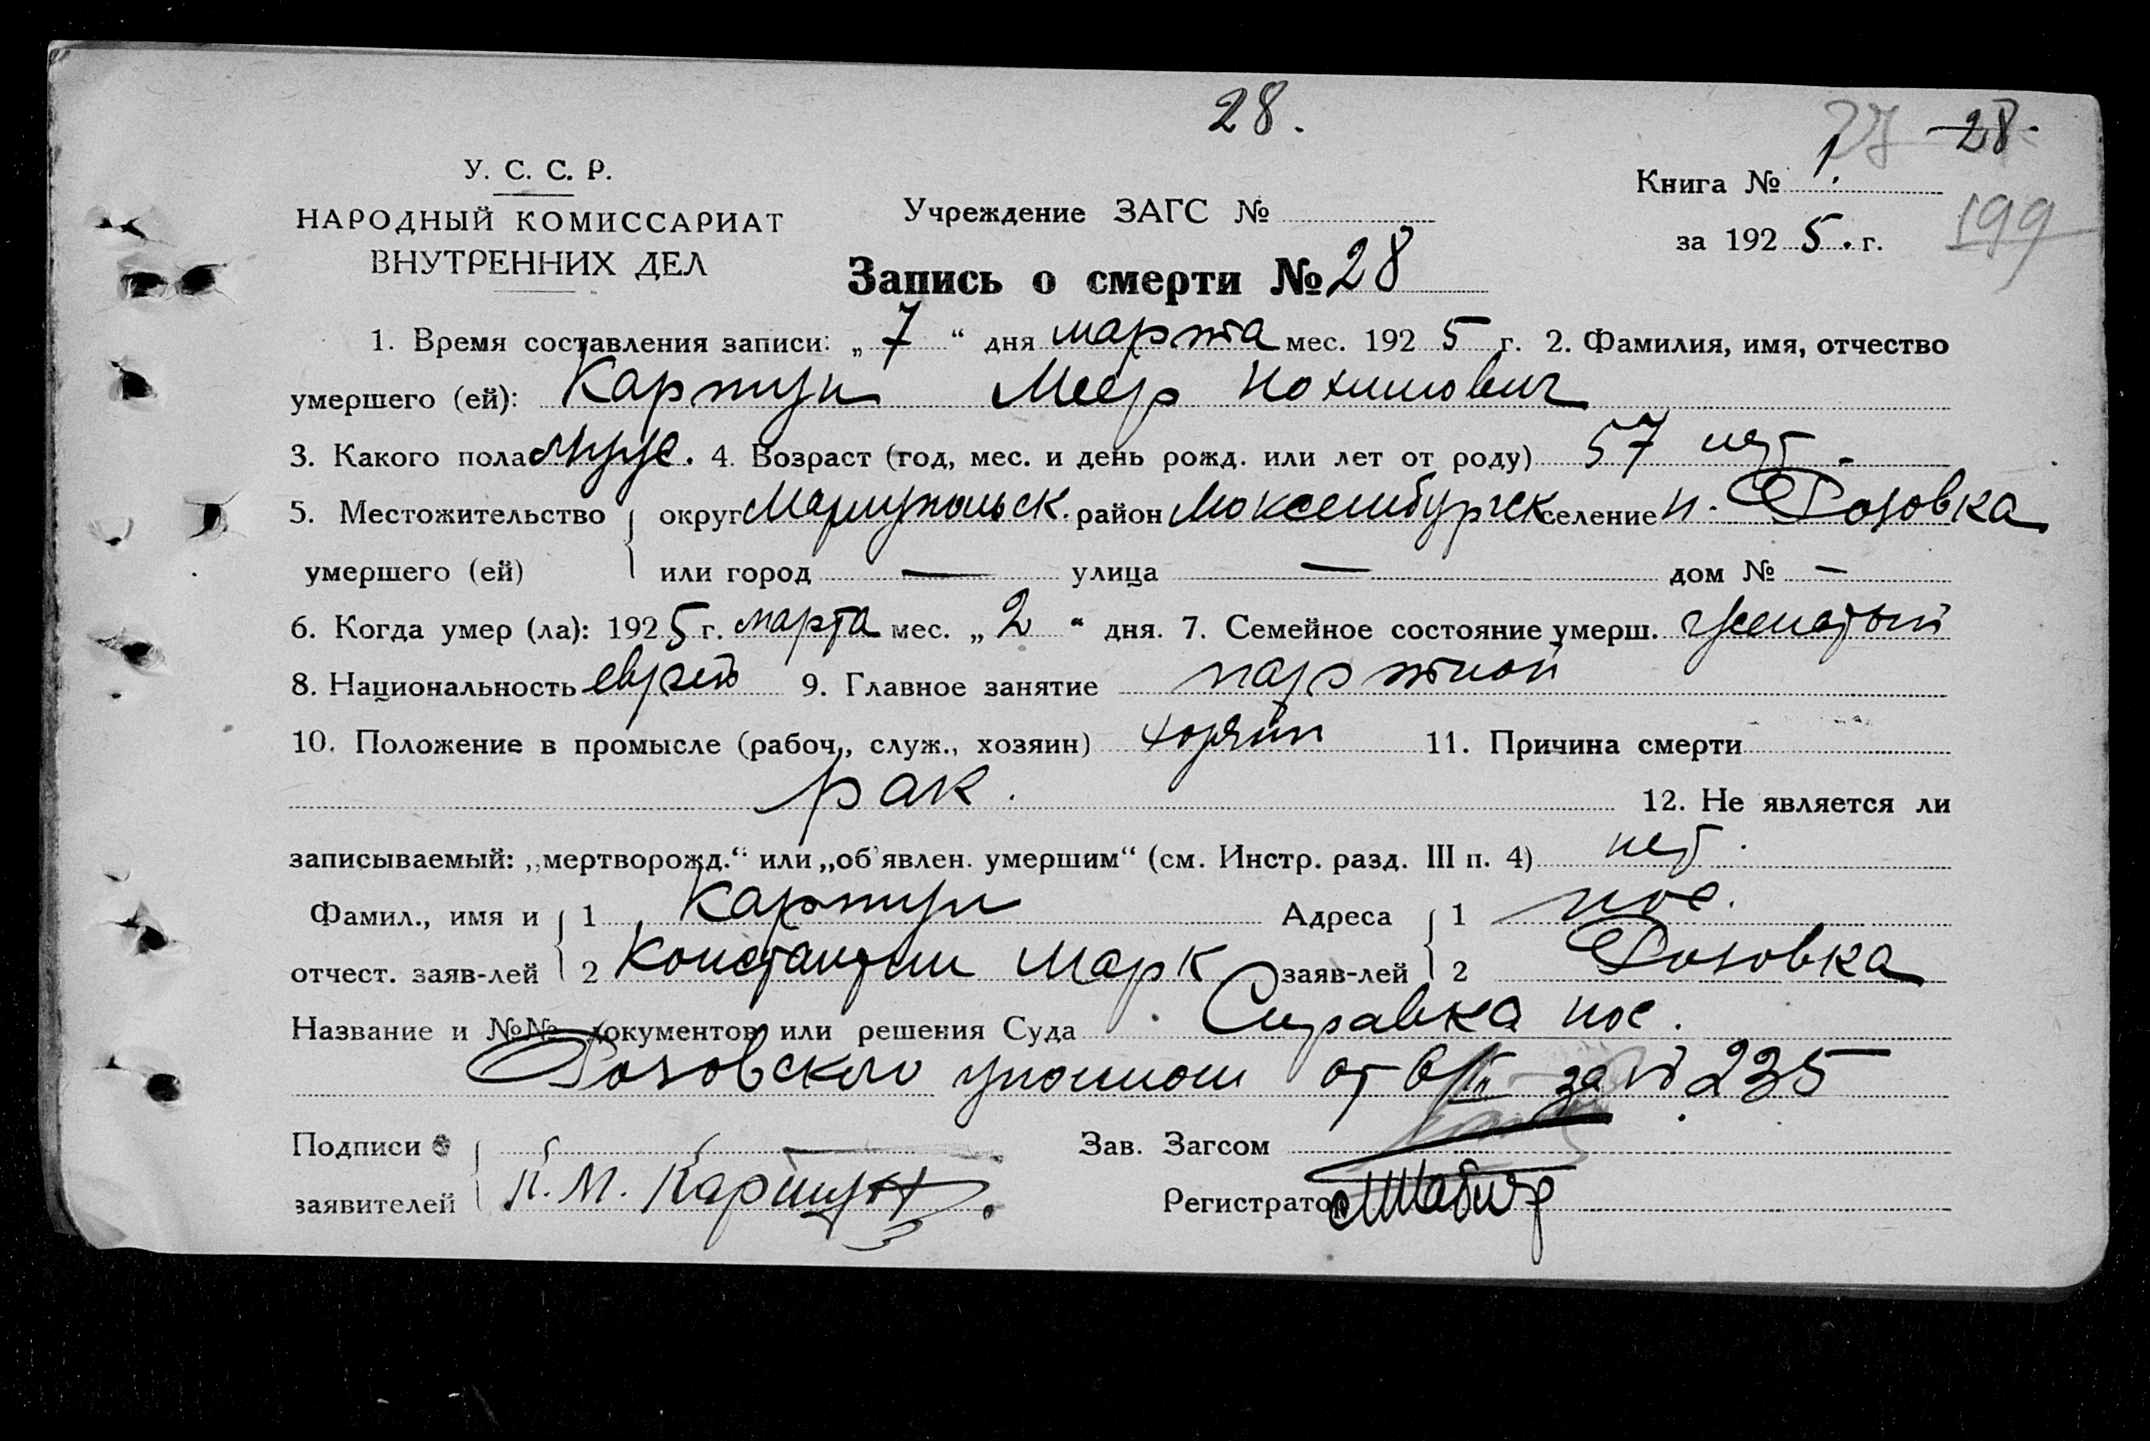 28.
27 28.
У. С. С. Р.
НАРОДНЫЙ КОМИССАРИАТ
ВНУТРЕННИХ ДЕЛ
Учреждение ЗАГС №
Книга № 1.
за 1925. г.
199
Запись о смерти № 28
1. Время составления записи: „7“ дня марта мес. 1925 г. 2. Фамилия, имя, отчество
умершего (ей): Картун Меер
3. Какого пола муж. 4. Возраст (год, мес. и день рожд. или лет от роду) 57 лет.
5. Местожительство округ Мариупольск. район Люксембургск селение п. Розовка
умершего (ей) или город — улица — дом № —
6. Когда умер (ла): 1925 г. марта мес. „2“ дня. 7. Семейное состояние умерш. женатый
8. Национальность еврей 9. Главное занятие портной
10. Положение в промысле (рабоч., служ., хозяин) хозяин 11. Причина смерти
рак. 12. Не является ли
записываемый: „мертворожд.“ или „об'явлен. умершим“ (см. Инстр. разд. III п. 4) нет.
Фамил., имя и 1 Картун Адреса 1 пос.
отчест. заяв-лей 2 Константин Марк заяв-лей 2 Розовка
Название и №№ документов или решения Суда Справка пос.
Розовского от 6/III за № 235
Подписи Зав. Загсом
заявителей К. М. Картун Регистратор